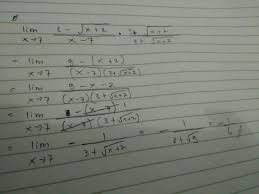 lim x→7 3 - √(x+2) / x - 7 · 3 + √(x+2) / 3 + √(x+2)
= lim x→7 9 - (x+2) / (x-7)(3+√(x+2))
= lim x→7 9 - x - 2 / (x-7)(3+√(x+2))
= lim x→7 -(x-7) 1 / (x-7)(3+√(x+2))
= lim x→7 - 1 / 3+√(x+2) = - 1 / 3+√9 = -1 / 6